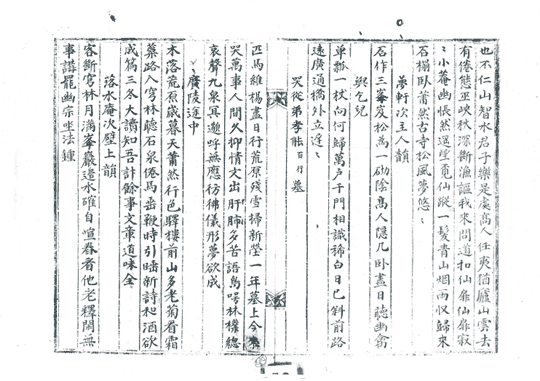 也不仁山智水君子樂是處高人任爽伯廬山雲去
有倦態巫峽秋深斷漁謳我來問道扣仙扉仙扉寂
〻小庵幽悵然遥望電仙蹤一髮青山烟雨収歸來
石榻臥蕭然古寺松風夢悠〻
夢軒次主人韻
石作三峯炭松爲一砌陰高人隱几臥盡日聽幽禽
與乞兒
單瓢一杖向何歸萬戶千門相識稀白日已斜前路
遠廣通橋外立遅〻
哭從弟孝能百行墓
匹馬維楊盡日行荒原殘雪掃新塋一年墓上今來
哭萬事人間久抑情文出肝肺多苦語鳥啼林樾總
哀聲九泉冥邈呼無應彷彿儀形夢欲成
廣陵途中
木落荒原歲暮天蕭然行色驛樓前山多老菊看霜
蘂路入穹林聽石泉倦馬歬鞭時引睡新詩和酒欲
成篇三冬大讀知吾計餘事文章道味全
落水庵次壁上韻
客斷穹林月滿峯巖邊水碓自喧舂看他老釋閑無
事講罷幽宗坐法鍾